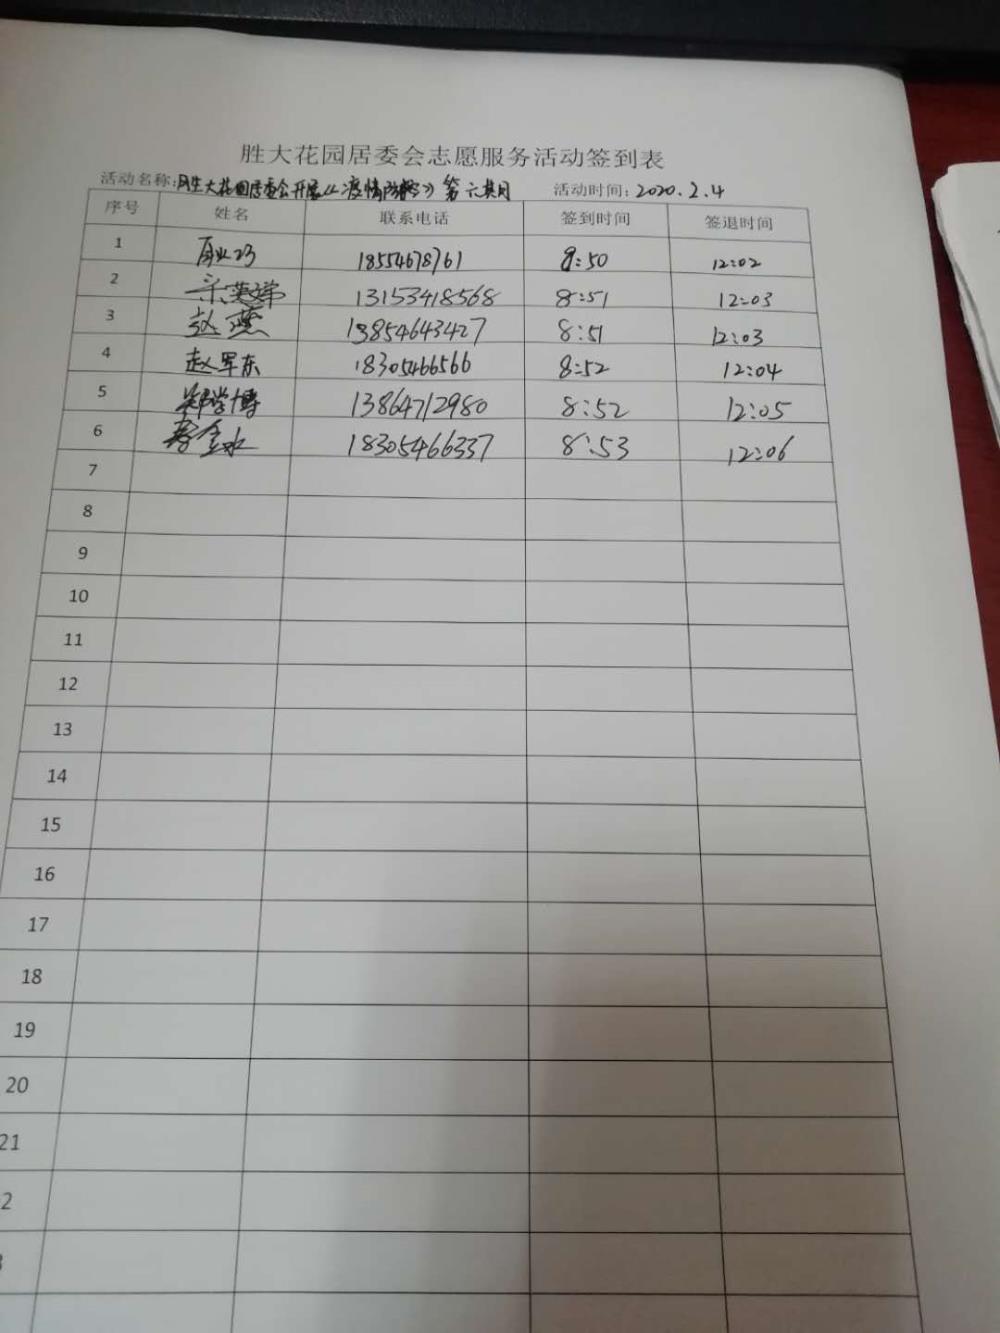 胜大花园居委会志愿服务活动签到表
活动名称:胜大花园居委会开展《疫情防控》第六期 活动时间:2020.2.4
序号 姓名 联系电话 签到时间 签退时间
1 18554678761 8:50 12:02
2 13153418568 8:51 12:03
3 赵燕 13854643427 8:51 12:03
4 赵军东 18305466566 8:52 12:04
5 郑学博 13864712980 8:52 12:05
6 18305466337 8:53 12:06
7
8
9
10
11
12
13
14
15
16
17
18
19
20
21
2